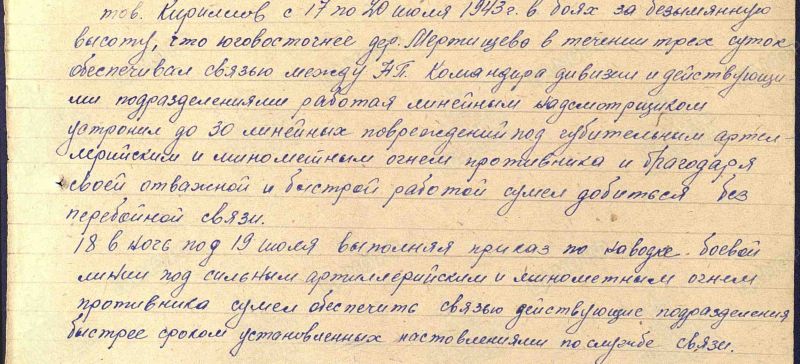 тов. Кириллов с 17 по 20 июля 1943 г. в боях за безымянную
высоту, что юговосточнее дер. Мертищево в течении трех суток
обеспечивал связью между НП. Командира дивизии и действующи-
ми подразделениями работая линейным надсмотрщиком
устронил до 30 линейных повреждений под губительным артил-
лерийским и минометным огнем противника и благодаря
своей отважной и быстрой работой сумел добиться без
перебойной связи.
18 в ночь под 19 июля выполняя приказ по наводке боевой
линии под сильным артиллерийским и минометным огнем
противника сумел обеспечить связью действующие подразделения
быстрее сроком установленных наставлениями по службе связи.